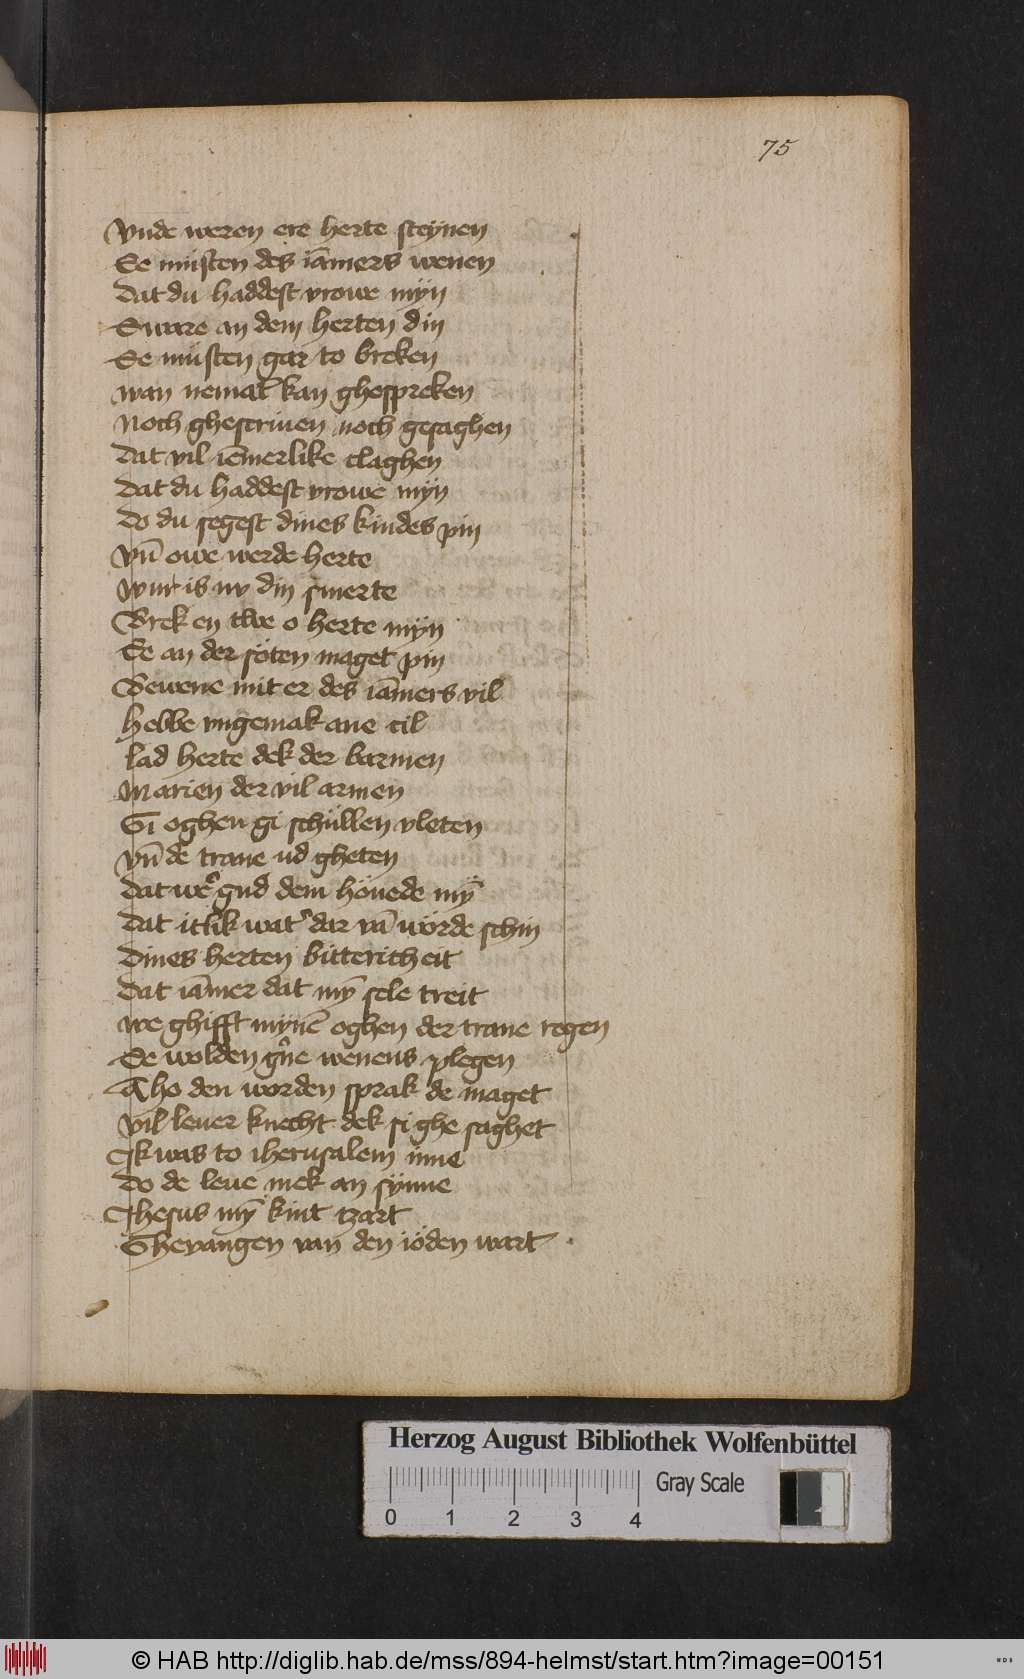 75
Vnde weren ere herte steynen
Se müsten des iāmers wenen
Dat du haddest vrowe myn
Sware an dem herten din
Se müsten gar to breken
wan nemat kan ghespreken
Noch ghescriuen noch gesaghen
Dat vil iēmerlike claghen
Dat du haddest vrowe myn
Do du segest dines kindes pin
Vn̄ owe werde herte
Wur is nv din smerte
Brek en twe o herte myn
Se an der söten maget pin
Bewene mit er des iāmers vil
Hebbe vngemak ane til
lad herte dek der barmen
Marien der vil armen
Gi oghen gi schüllen vleten
Vn̄ de trane ud gheten
Dat we͛ gnd dem höuede mȳ
Dat itlik wat͛ dar vā wörde schin
Dines herten bitteritheit
Dat iāmer dat mȳ sele treit
we ghifft mynē oghen der trane regen
Se wolden g͛ne wenens plegen
Tho den worden sprak de maget
Vil leuer knecht dek si ghe saghet
Ik was to iherusalem inne
Do de leue mek an synne
Jhesus mȳ kint tzart
Gheuangen van den ioden wart
Herzog August Bibliothek Wolfenbüttel
0 1 2 3 4
Gray Scale
© HAB http://diglib.hab.de/mss/894-helmst/start.htm?image=00151